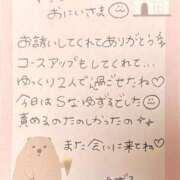 おにいさま
お誘いしてくれてありがとう
コースアップもしてくれて...
ゆっくり2人で過ごせたね♡
今日はSなゆずるでした
責めるのたのしかったの
また会いに来てね♡